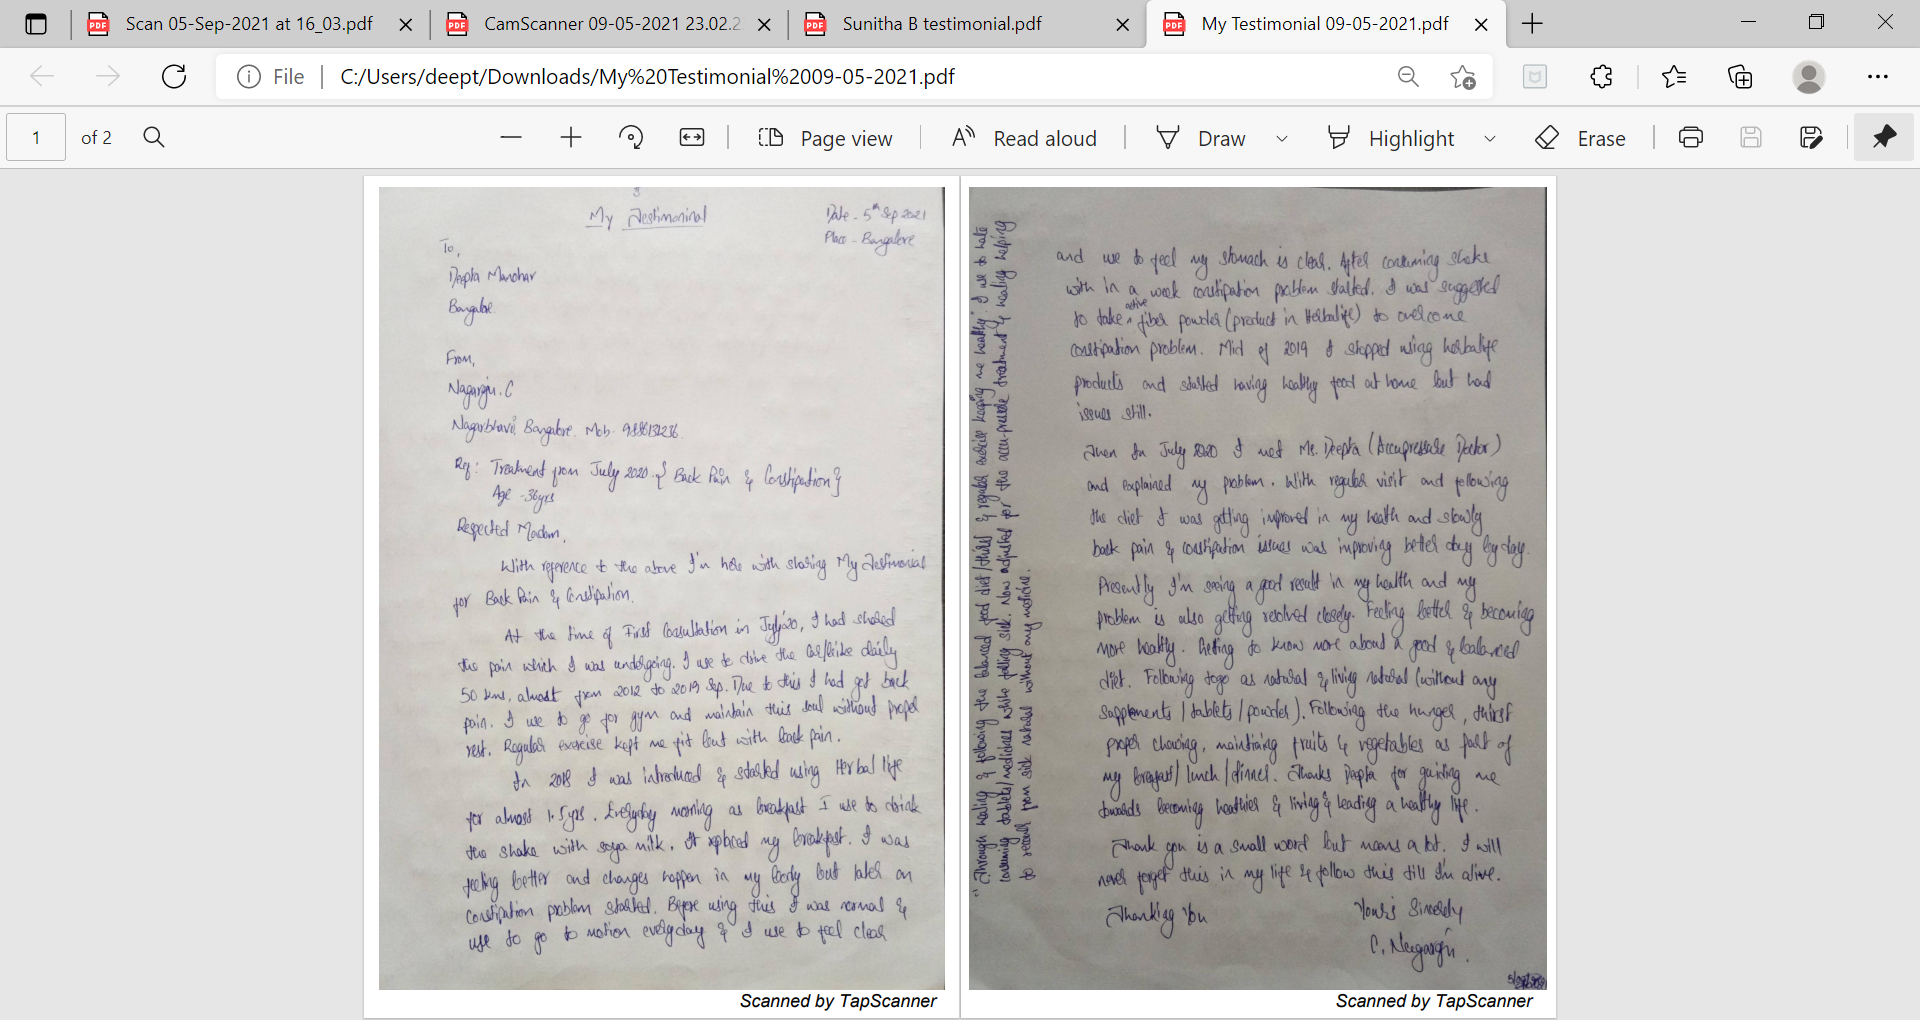 Scan 05-Sep-2021 at 16_03.pdf
CamScanner 09-05-2021 23.02.2
Sunitha B testimonial.pdf
My Testimonial 09-05-2021.pdf
File
C:/Users/deept/Downloads/My%20Testimonial%2009-05-2021.pdf
1 of 2
Page view
Read aloud
Draw
Highlight
Erase
My Testimonial
Date - 5th Sep 2021
Place - Bangalore
To,
Deepta Manohar
Bangalore.
From,
Nagaraju. C
Nagarbhavi, Bangalore. Mob-
Ref: Treatment from July 2020 - { Back Pain & Constipation}
Age - 36yrs
Respected Madam,
With reference to the above I'm here with sharing My Testimonial
for Back Pain & Constipation.
At the time of First Consultation in July'20, I had shared
the pain which I was undergoing. I use to drive the Car/bike daily
50 kms, almost from 2012 to 2019 Sep. Due to this I had got back
pain. I use to go for gym and maintain this soul without proper
rest. Regular exercise kept me fit but with back pain.
In 2018 I was introduced & started using Herbal life
for almost 1.5yrs. Everyday morning as breakfast I use to drink
the shake with soya milk. It replaced my breakfast. I was
feeling better and changes happen in my body but later on
constipation problem started. Before using this I was normal &
use to go to motion everyday & I use to feel clear
Scanned by TapScanner
and use to feel my stomach is clear. After consuming shake
with in a week constipation problem started. I was suggested
to take active fiber powder (product in Herbalife) to overcome
constipation problem. Mid of 2019 I stopped using herbalife
products and started having healthy food at home but had
issues still.
Then In July 2020 I met Ms. Deepta (Accupressure Doctor)
and explained my problem. With regular visit and following
the diet I was getting improved in my health and slowly
back pain & constipation issues was improving better day by day.
Presently I'm seeing a good result in my health and my
problem is also getting resolved closely. Feeling better & becoming
more healthy. Getting to know more about a good & balanced
diet. Following to go as natural & living natural (without any
supplements / tablets / powder). Following the hunger, thirst
proper chewing, maintaining fruits & vegetables as part of
my breakfast / lunch / dinner. Thanks Deepta for guiding me
towards becoming healthier & living & leading a healthy life.
Thank you is a small word but means a lot. I will
never forget this in my life & follow this till I'm alive.
Thanking You
Yours Sincerely
C. Nagaraju.
"Through healing & following the balanced food diet / thirst & regular exercise keeping me healthy". I use to hate
consuming tablets/medicines while falling sick. Now adjusted for the accu-pressure treatment & healing helping
to recover from sick natural without any medicine.
Scanned by TapScanner